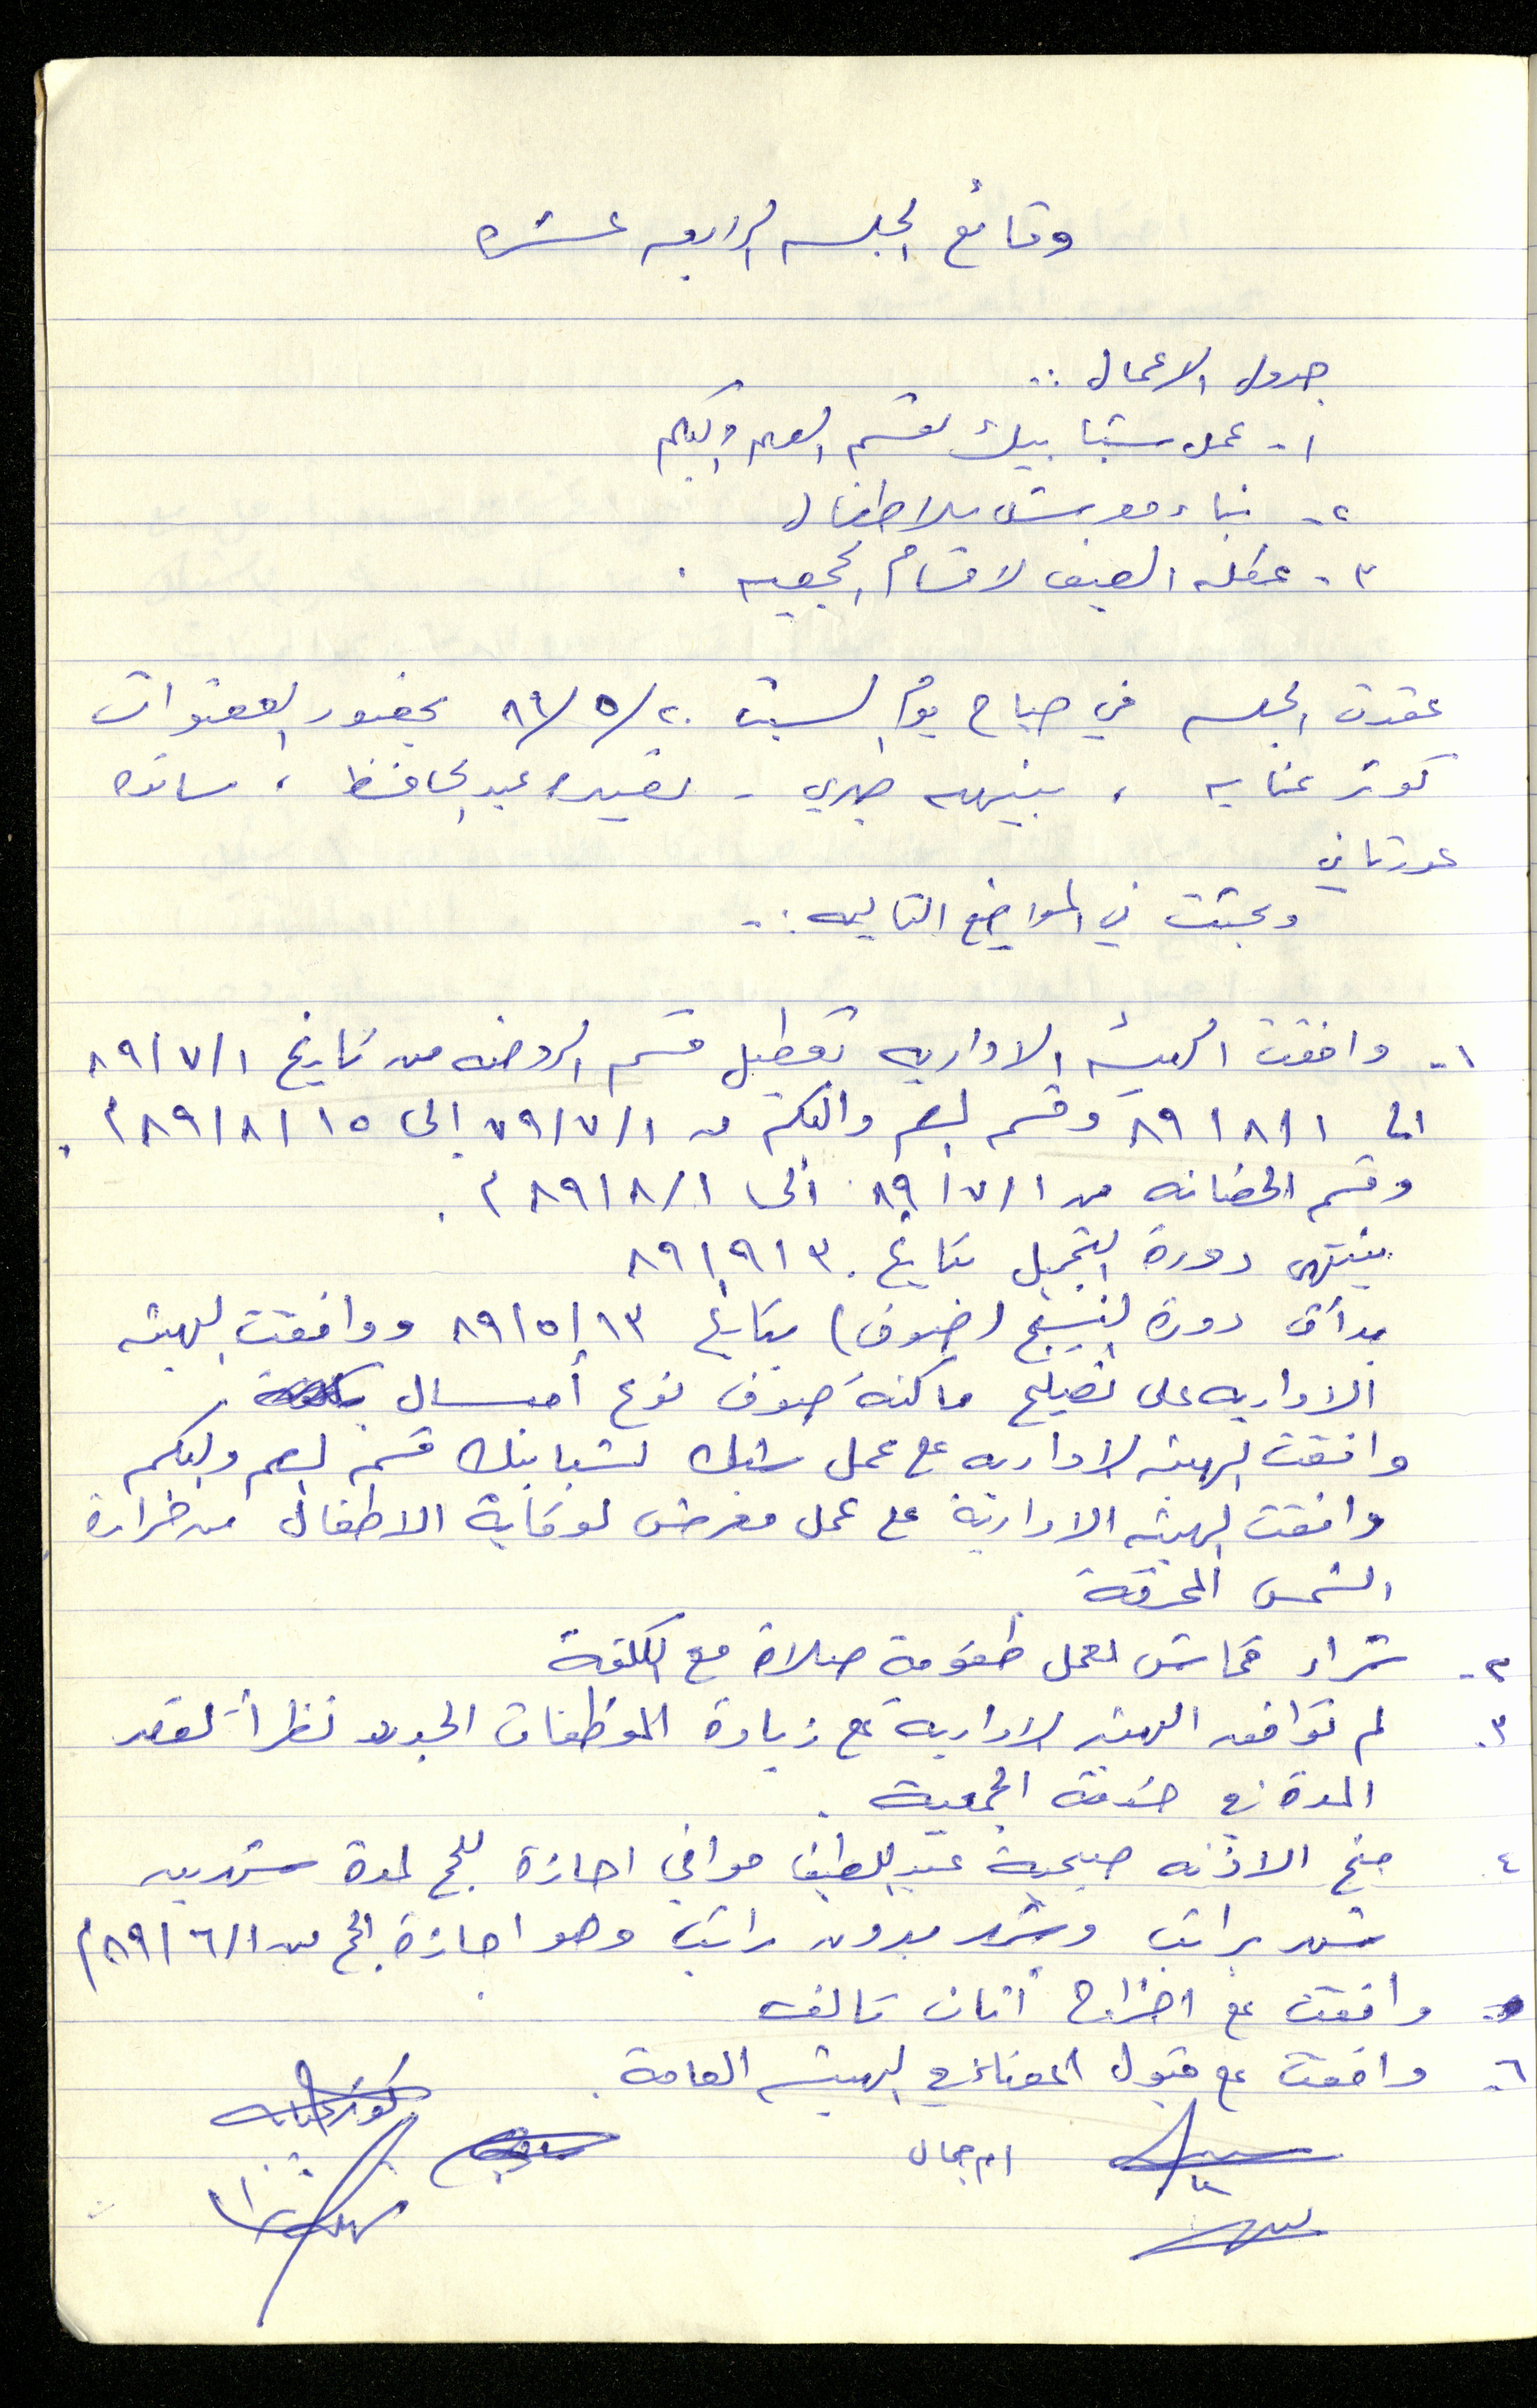 وقائع الجلسه الرابعه عشره
جدول الاعمال :.
١- عمل شبابيك لقسم الصم والبكم
٢- بناء معرش للاطفال
٣- عطله الصيف لاقسام الجمعيه .
عقدت الجلسه في صباح يوم السبت ٨٩/٥/٢٠ بحضور العضوات
كوثر عنايه ، بنيهه صبري - نصيره عبد الحافظ ، سائده
عورتاني
وبحثت في المواضع التاليه :-
١- وافقت الهيئه الاداريه تعطيل قسم الروضه من تاريخ ٨٩/٧/١
الى ٨٩/٨/١ وقسم الصم والبكم من ٧٩/٧/١ إلى ٨٩/٨/١٥م .
وقسم الحضانه من ٨٩/٧/١ الى ٨٩/٨/١م .
ينتهي دورة التجميل بتاريخ ٨٩/٩/٣٠
بدأت دورة النسيج (صوف) بتاريخ ٨٩/٥/١٣ ووافقت الهيئه
الاداريه على تصليح ماكنة صوف نوع أمسال
وافقت الهيئه الاداريه ع عمل شبك لشبابيك قسم الصم والبكم
وافقت الهيئه الادارية على عمل معرض لوقاية الاطفال من حرارة
الشمس المحرقة
٢- شراء قماش لعمل طقومة صلاة مع الكلفة
٣- لم توافق الهيئه الادارية ع زيادة الموظفات الجدد نظراً لقصر
المدة في خدمة الجمعية .
٤- منح الاذنه صبحية عبد اللطيف موافي اجازة للحج لمدة شهرين
شهر براتب وشهر بدون راتب وهو اجازة الحج من ٨٩/٦/١م
٥- وافقت ع اخراج أثاث تالف
٦- وافقت ع قبول اعضاء في الهيئه العامة .
كوثر عنايه
ام جمال